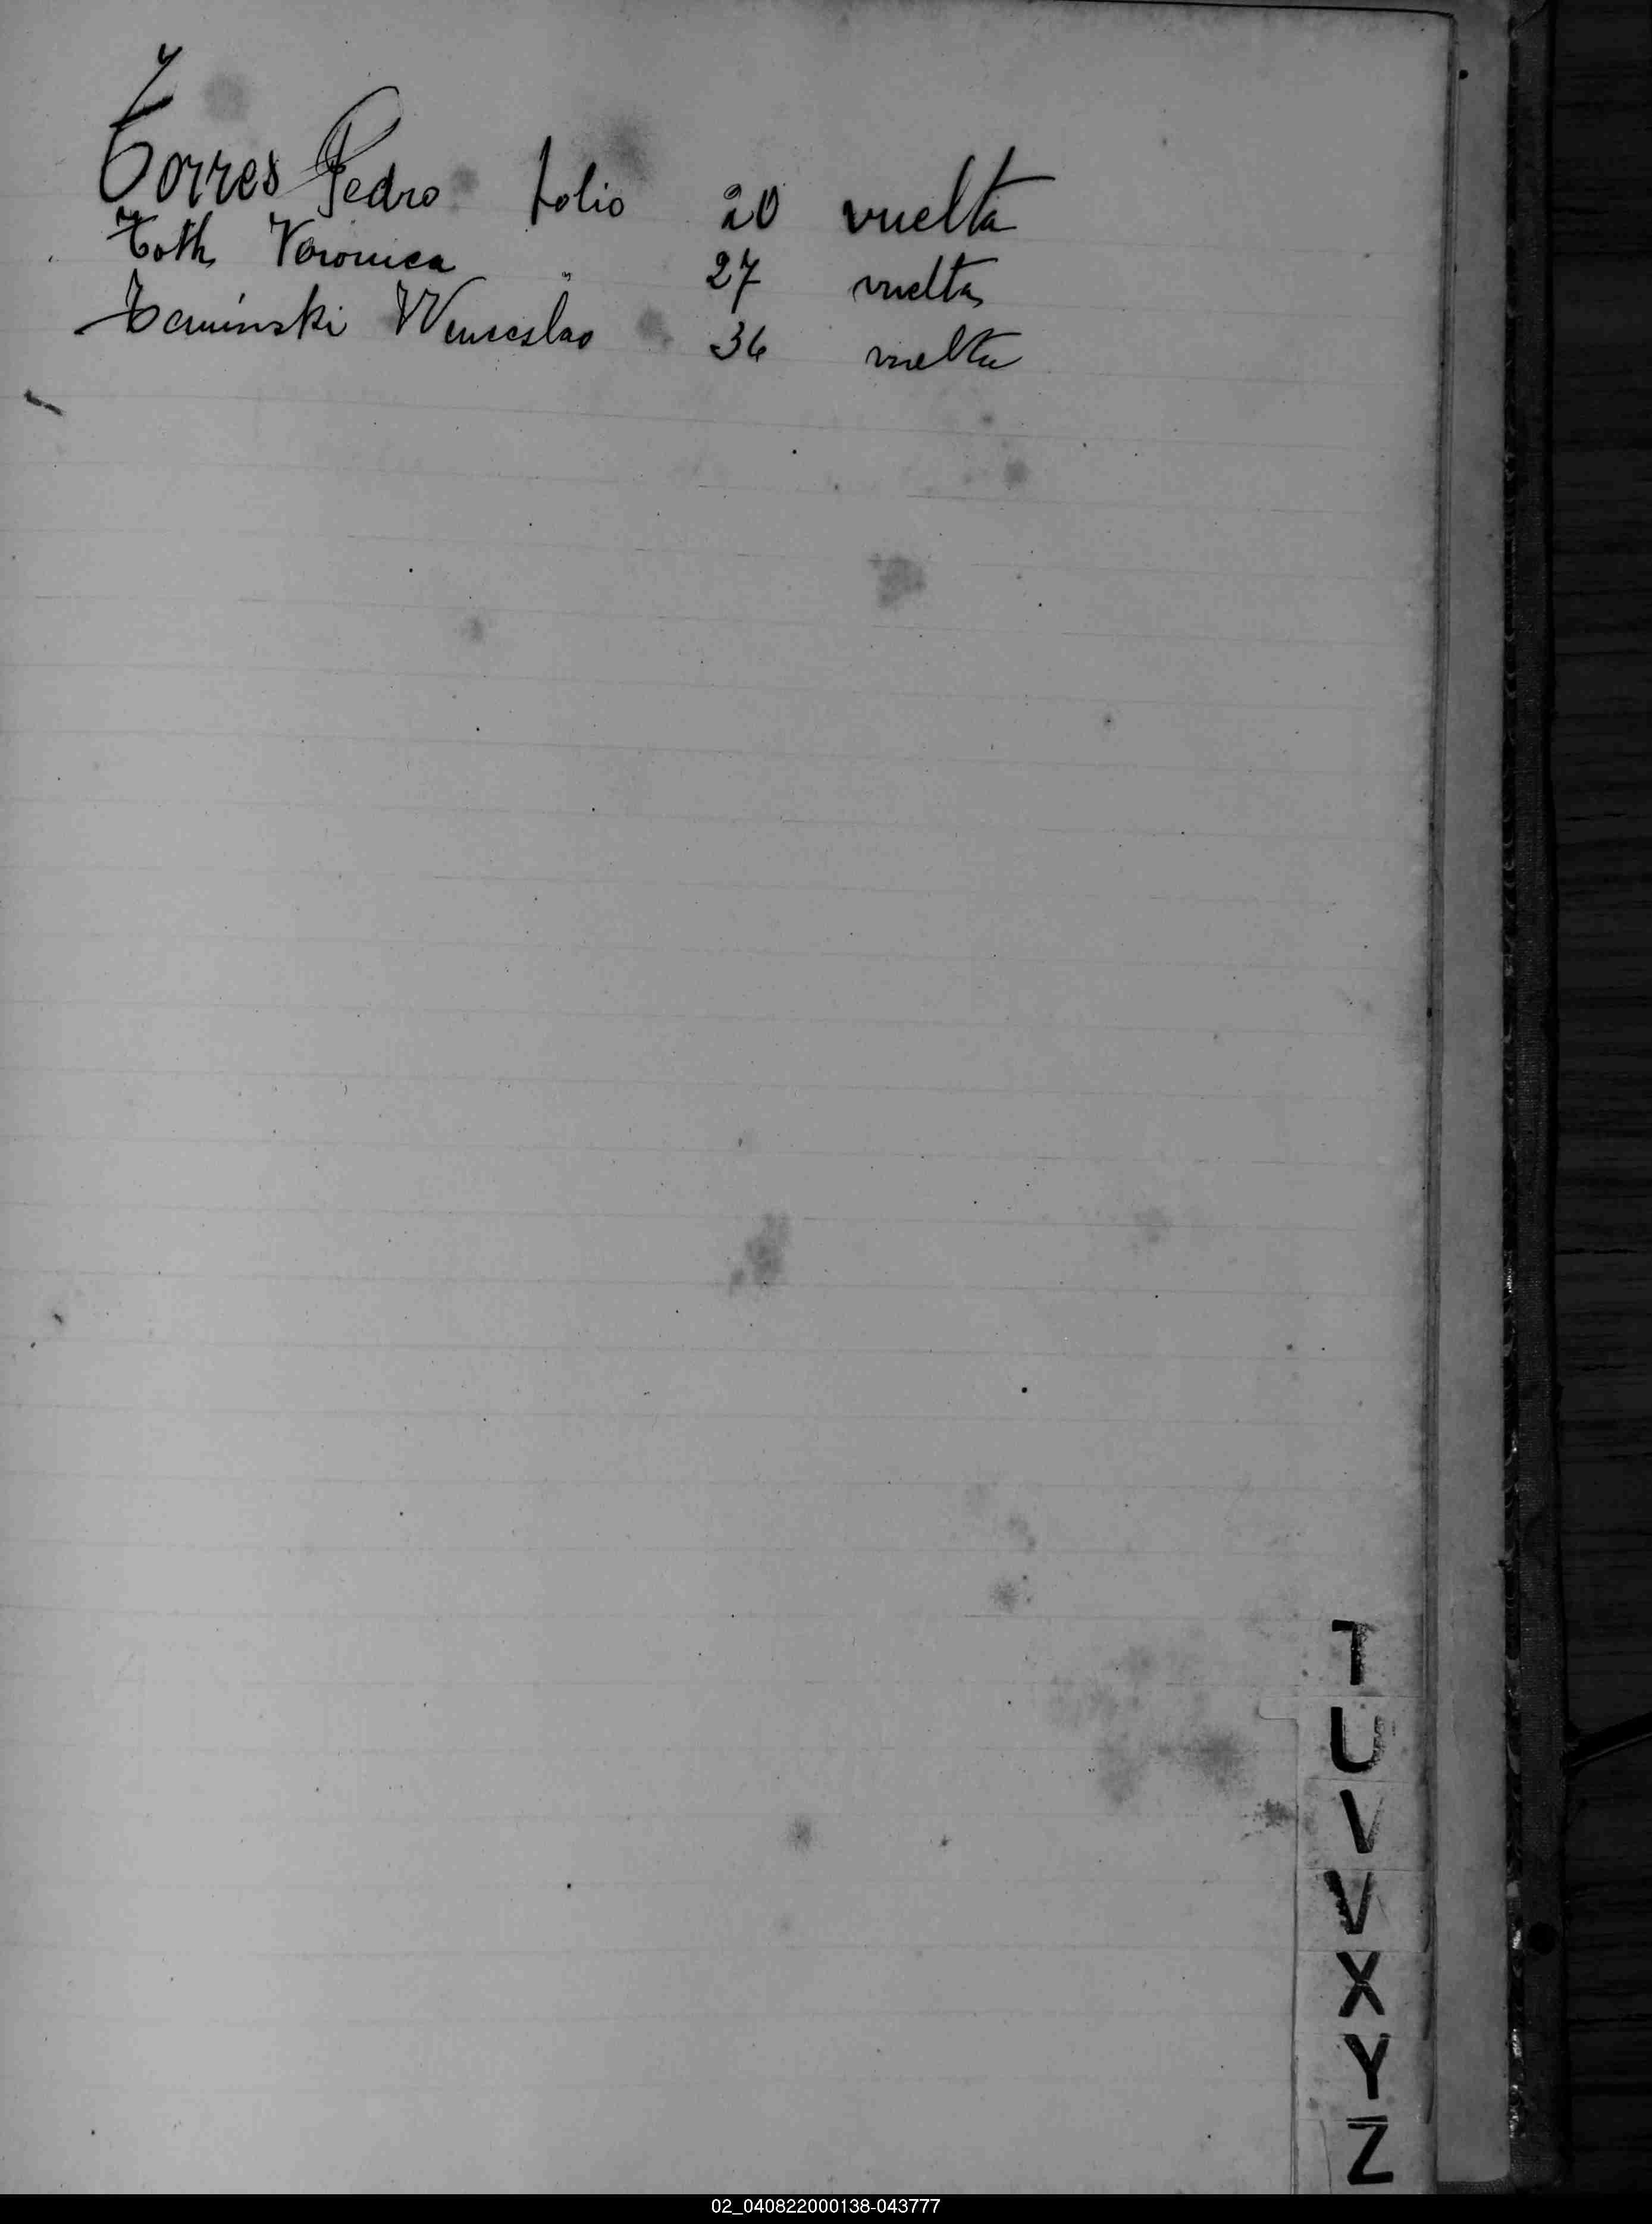 Torres Pedro folio 20 vuelta
Toth Veronica " 27 vuelta
Wenceslao 36 vuelta
T
U
V
V
X
Y
Z
02_040822000138-043777